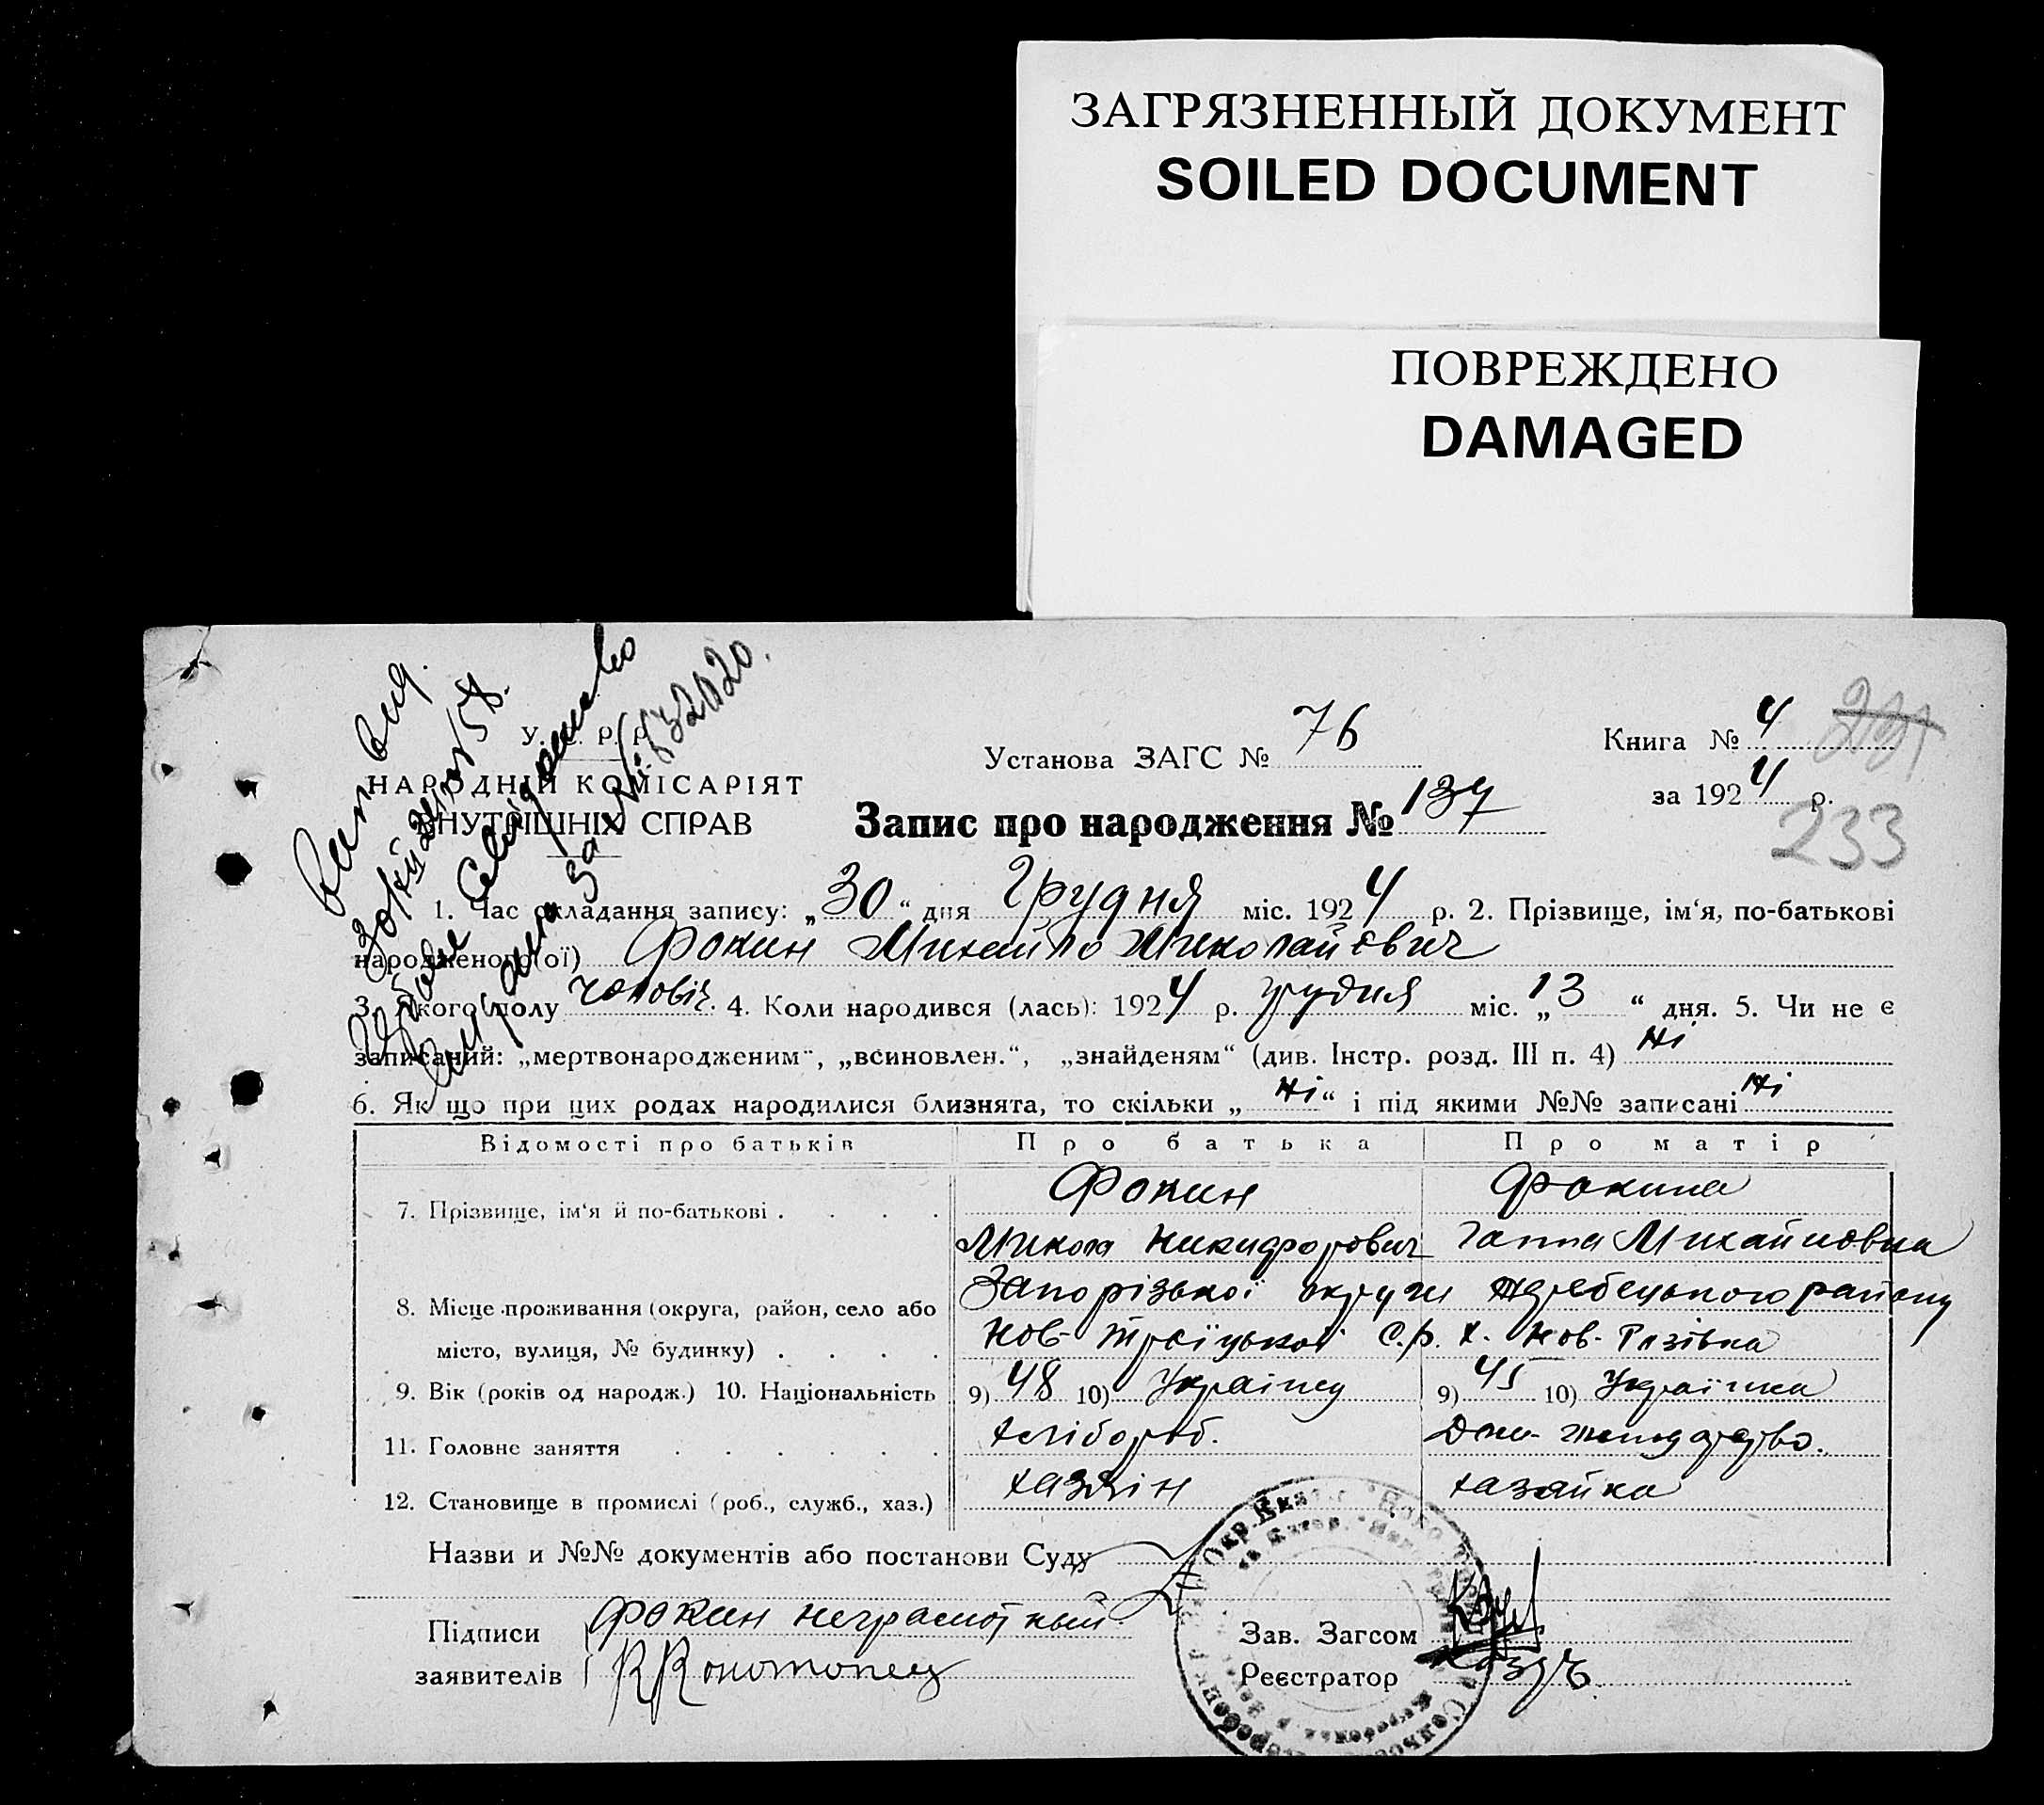 ЗАГРЯЗНЕННЫЙ ДОКУМЕНТ
SOILED DOCUMENT
ПОВРЕЖДЕНО
DAMAGED
У. Р. Р.
НАРОДНІЙ КОМІСАРІЯТ
ВНУТРІШНІХ СПРАВ
Установа ЗАГС № 76
Книга № 4
за 1924 р.
233
Запис про народження № 137
1. Час складання запису: „30“ дня Грудня міс. 1924 р. 2. Прізвище, ім‘я, по-батькові
народженого(ої) Фокин Михайло Миколайович
3. Якого полу чоловіч. 4. Коли народився (лась): 1924 р. грудня міс. „13“ дня. 5. Чи не є
записаний: „мертвонародженим“, „всиновлен.“, „знайденям“ (див. Інстр. розд. III п. 4) Ні
6. Як що при цих родах народилися близнята, то скільки „Ні“ і під якими №№ записані Ні
Відомості про батьків Про батька Про матір
7. Прізвище, ім‘я й по-батькові Фокин Фокина
Микола Никифорович Ганна Михайловна
8. Місце проживання (округа, район, село або Запорізької округи Жеребецького району
місто, вулиця, № будинку) Нов-Троїцької С.р. х. Нов-
9. Вік (років од народж.) 10. Національність 9) 48 10) Українец 9) 45 10) Українка
11. Головне заняття хлібороб. Дом.
12. Становище в промислі (роб., служб., хаз.) хазяін хазяйка
Назви и №№ документів або постанови Суду
Підписи Фокин неграмотный Зав. Загсом
заявителів Реєстратор